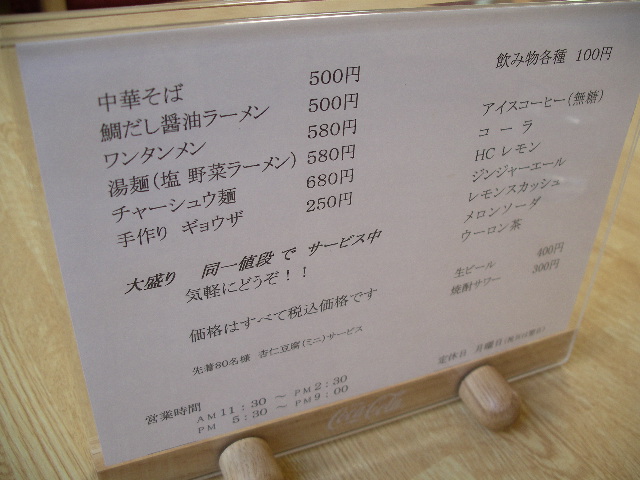 中華そば 500円
鯛だし醤油ラーメン 500円
ワンタンメン 580円
湯麺(塩 野菜ラーメン) 580円
チャーシュウ麺 680円
手作り ギョウザ 250円
大盛り 同一値段 で サービス中
気軽にどうぞ！！
価格はすべて税込価格です
先着80名様 杏仁豆腐(ミニ)サービス
営業時間 AM11：30 ～ PM2：30
PM 5：30 ～ PM9：00
飲み物各種 100円
アイスコーヒー(無糖)
コーラ
HCレモン
ジンジャーエール
レモンスカッシュ
メロンソーダ
ウーロン茶
生ビール 400円
焼酎サワー 300円
定休日 月曜日
Coca-Cola